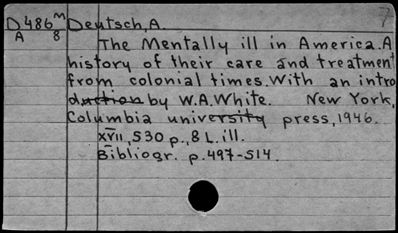 D486m Deutsch, A 7
A 8
The Mentally ill in America. A
history of their care and treatment
from colonial times. With an intro
duction by W.A. White. New York,
Columbia university press, 1946.
XVII, 530 p., 8 L. ill.
Bibliogr. p. 497-514.